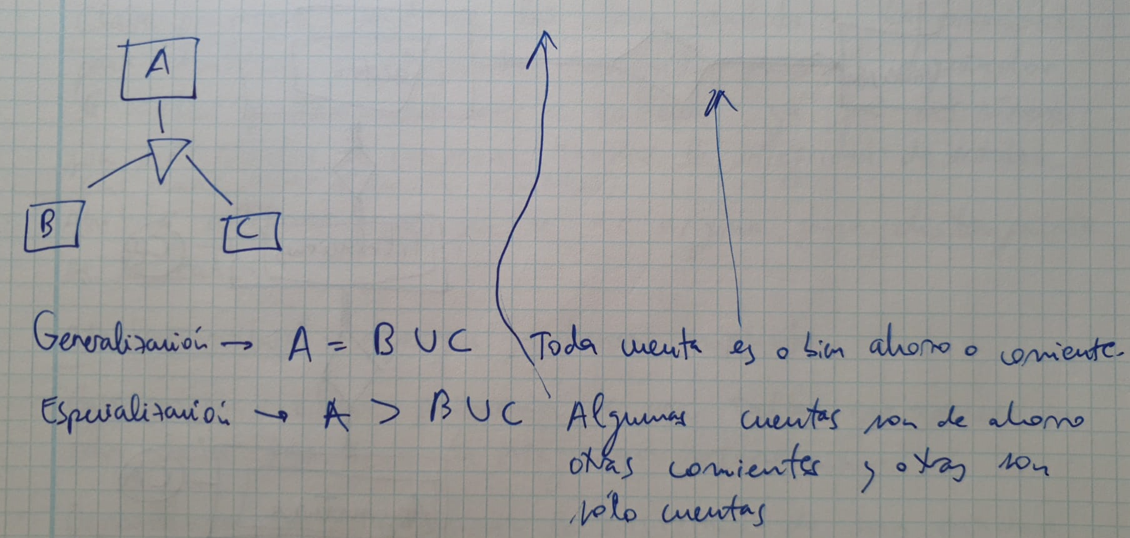 A
B
C
Generalización → A = B ∪ C Toda cuenta es o bien ahorro o corriente.
Especialización → A > B ∪ C Algunas cuentas son de ahorro
otras corrientes y otras son
sólo cuentas